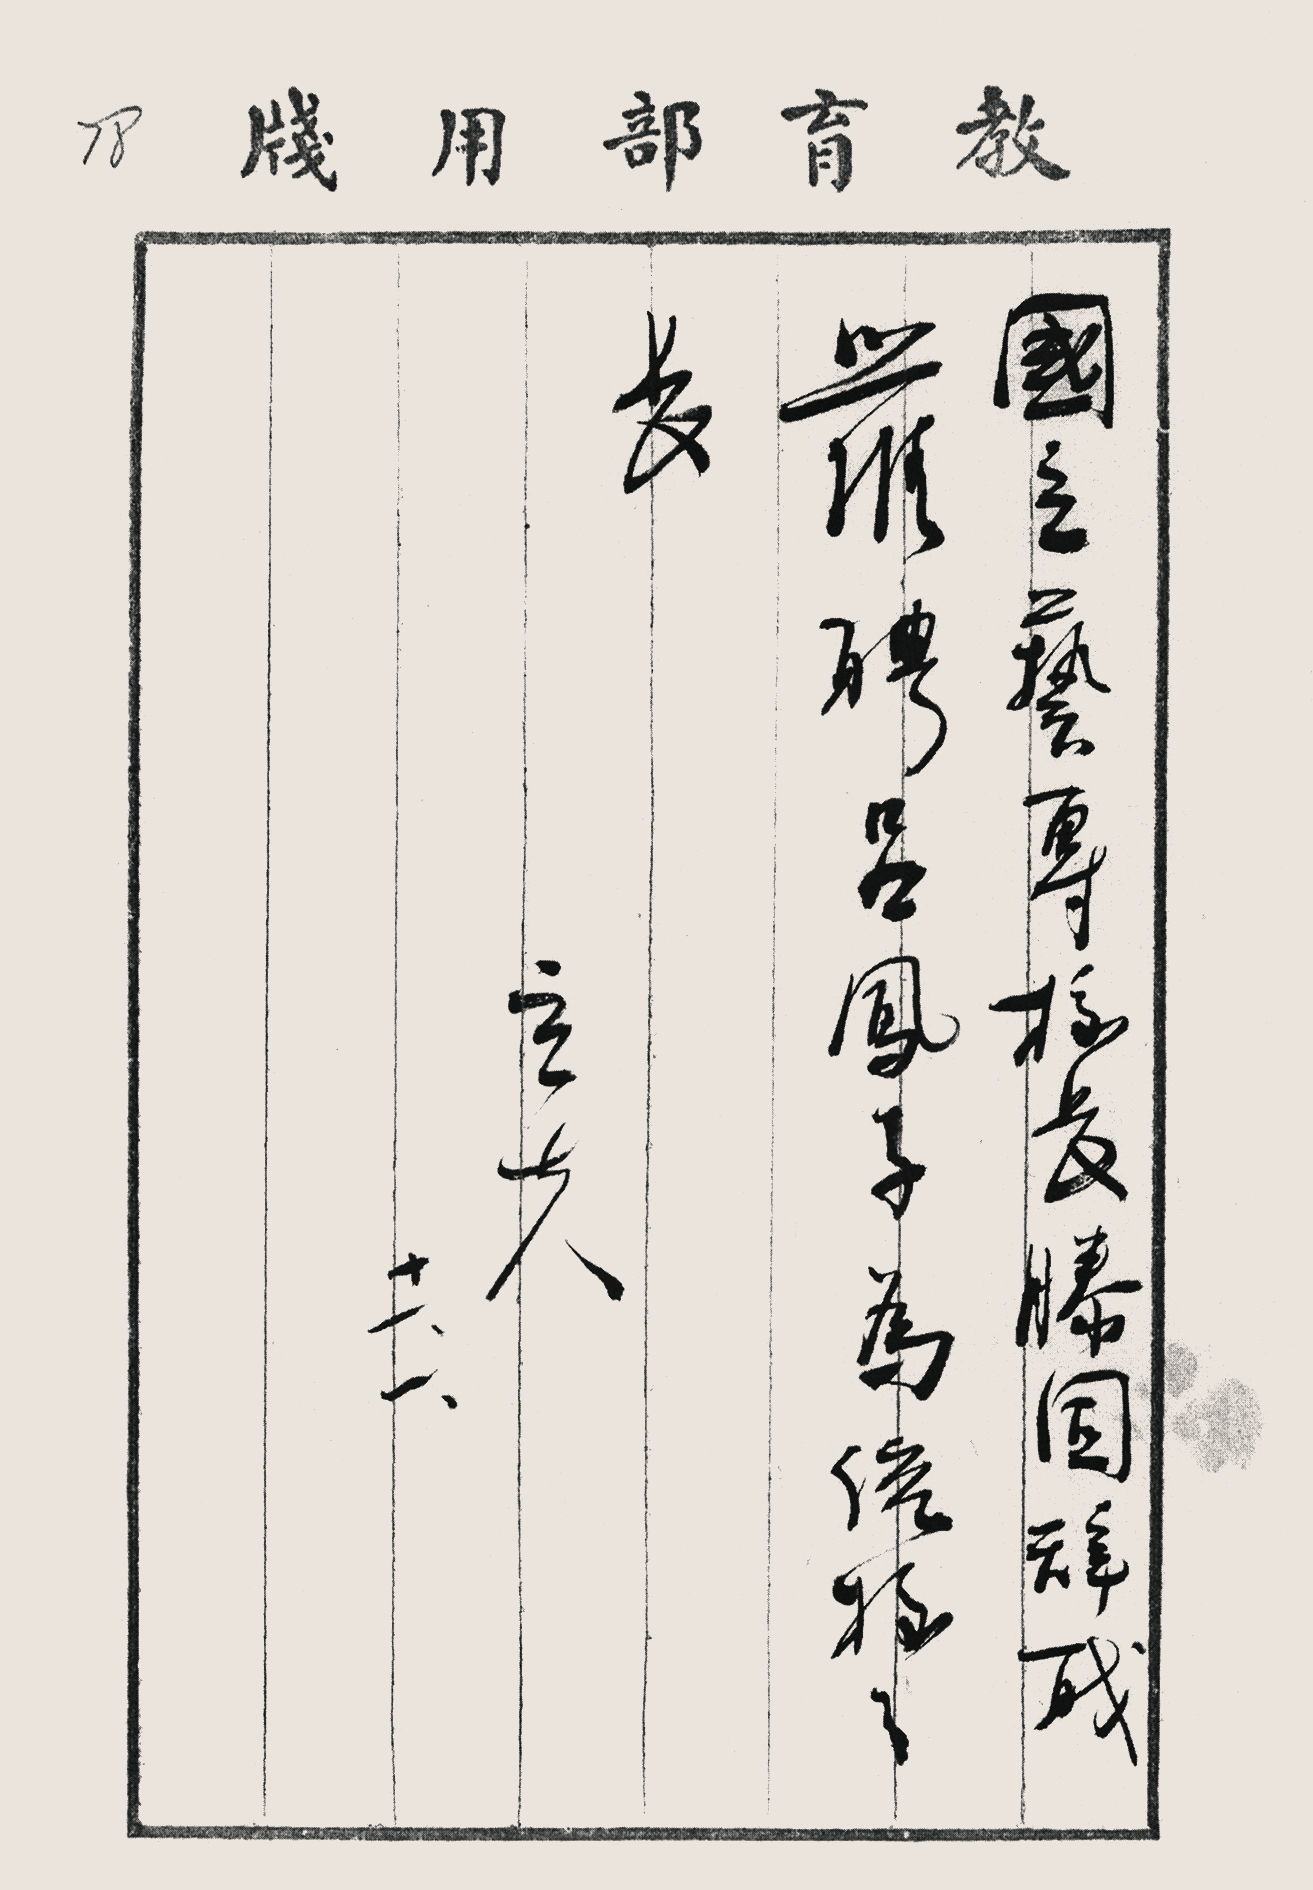 教育部用牋
國立藝專校長滕固辭職
照准聘呂鳳子為繼校
長
立夫
十一、一、